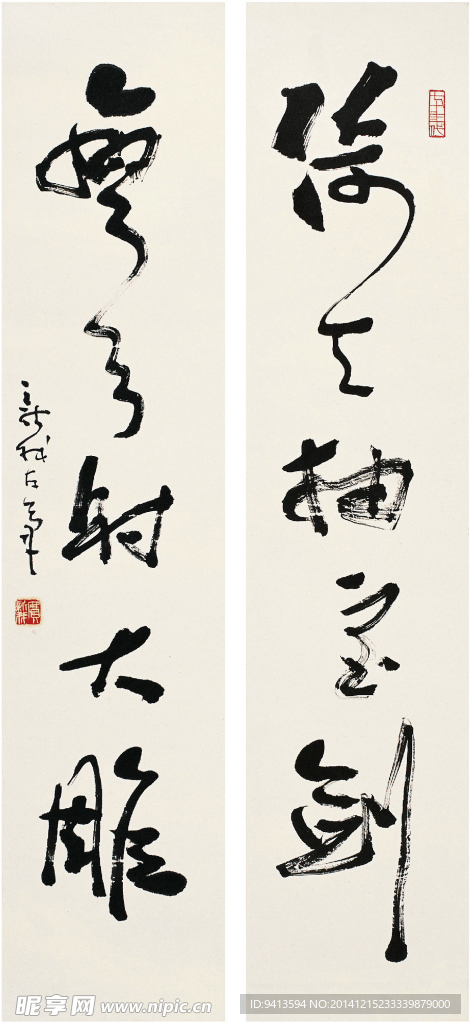 倚天抽宝剑
弯弓射大雕
昵享网 www.nipic.cn
ID:9413594 NO:20141215233339879000